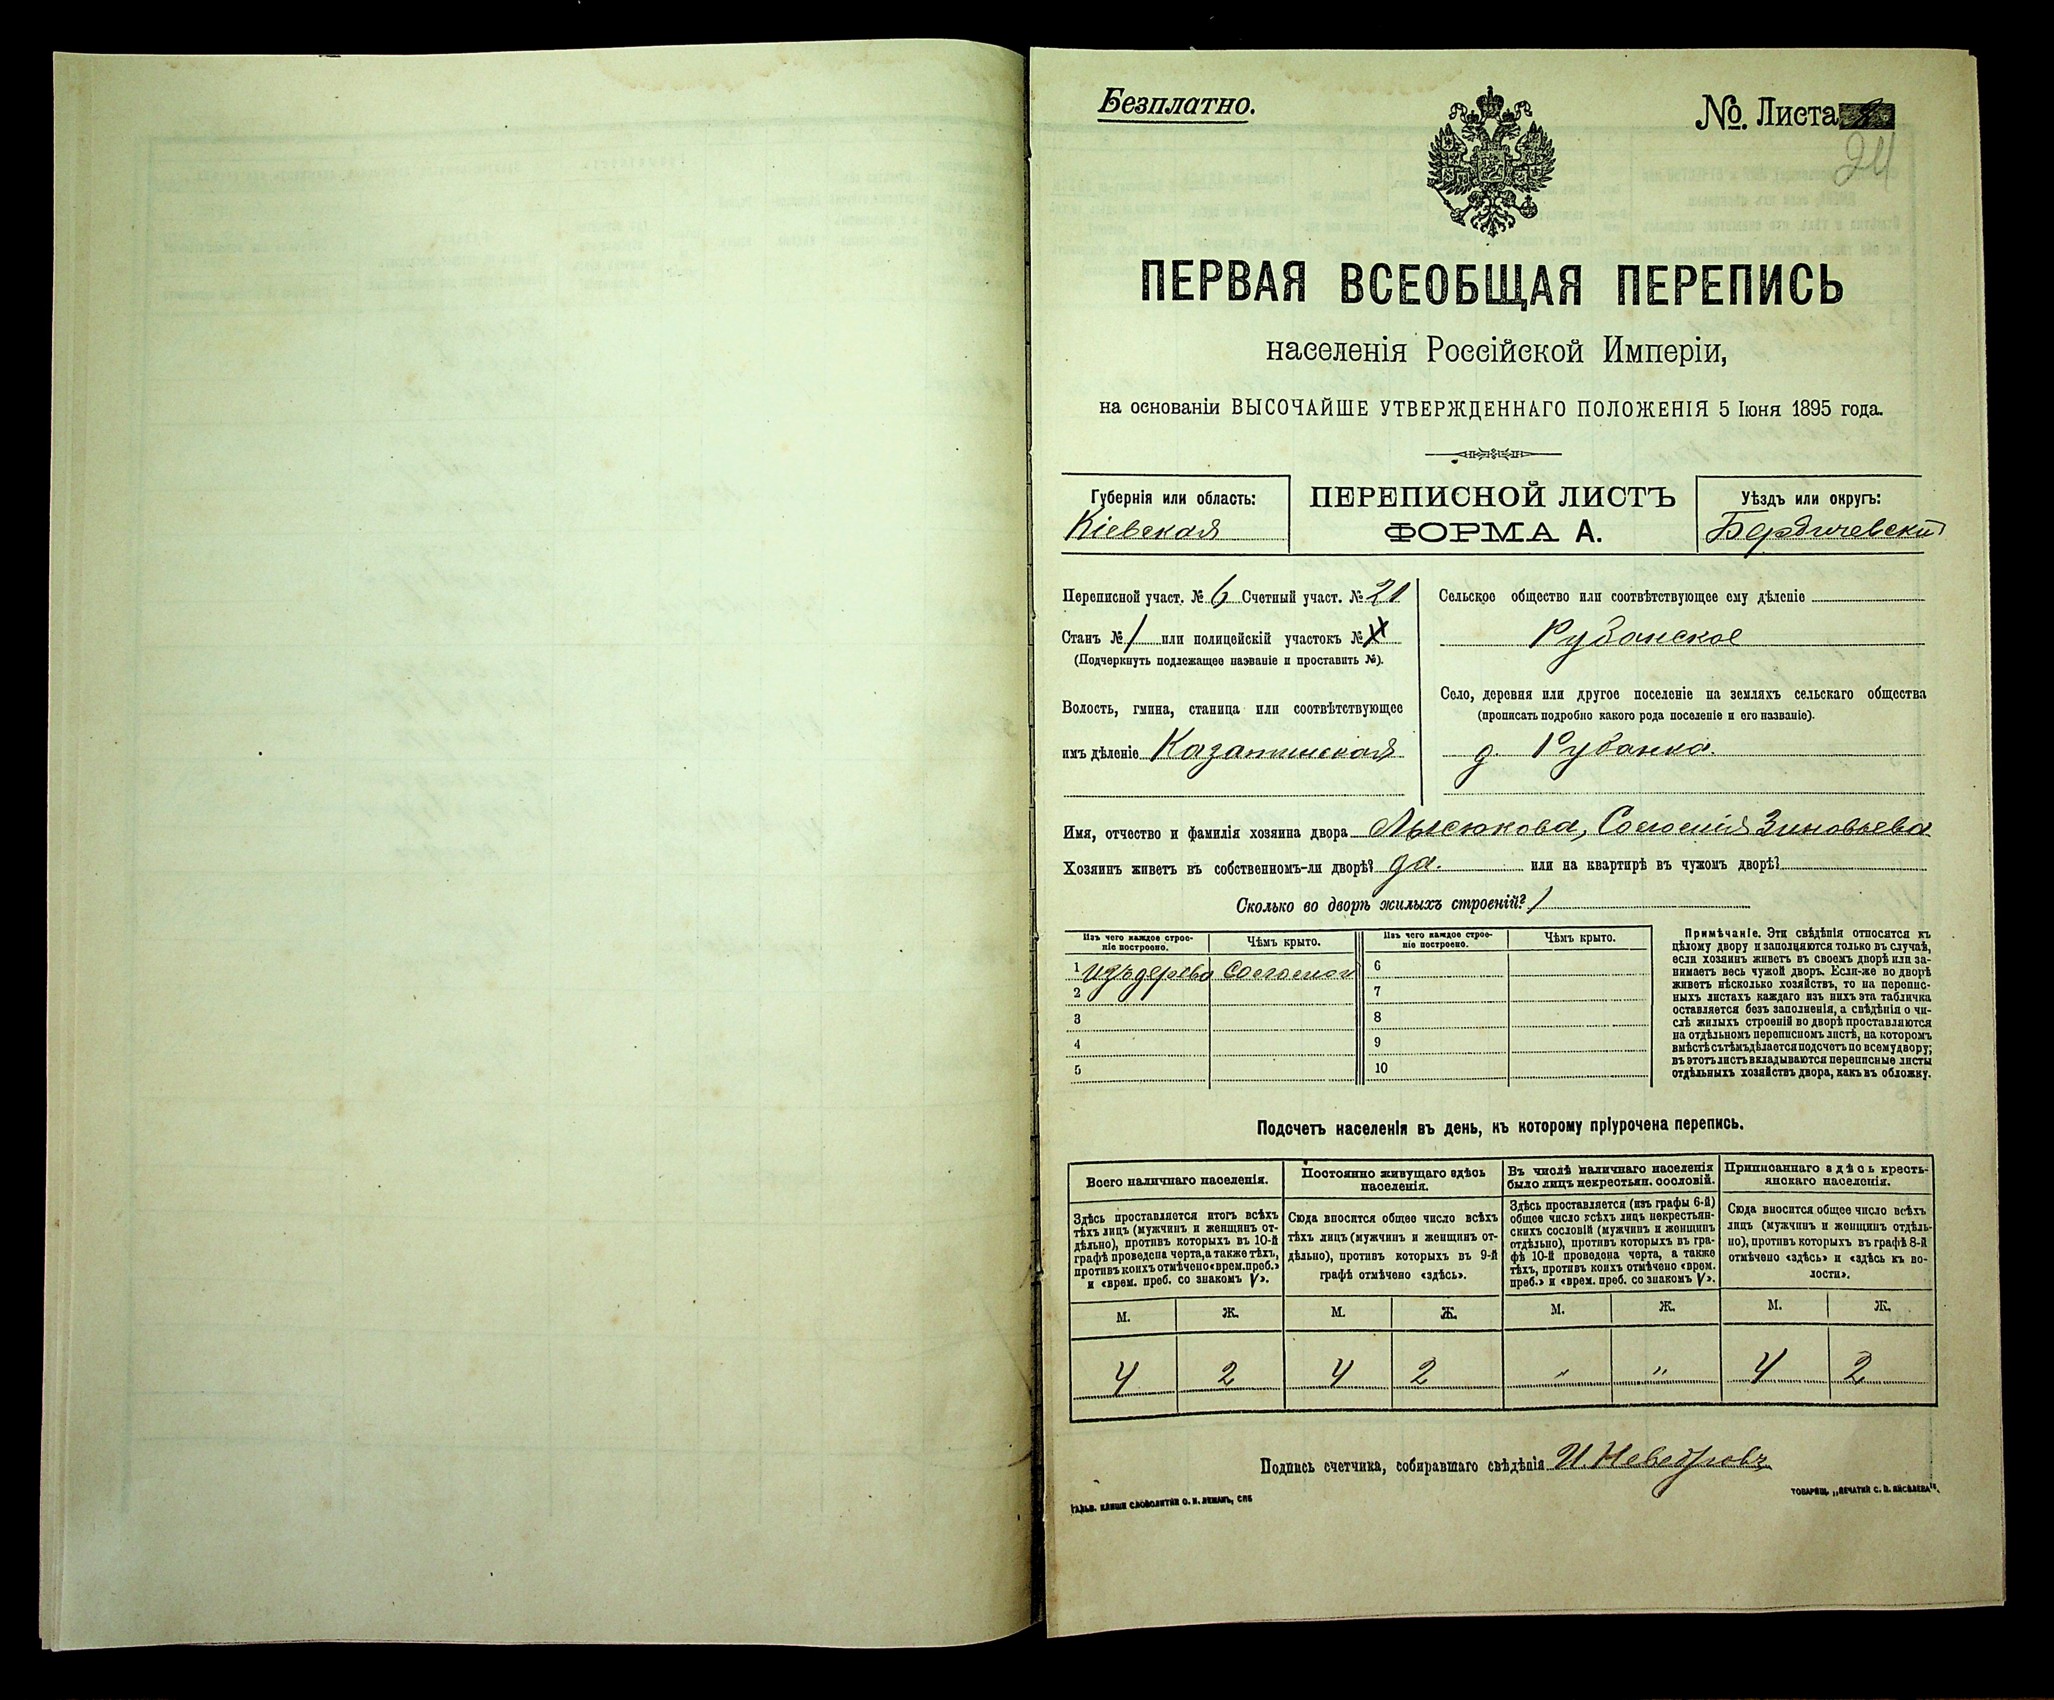 Безплатно.
№. Листа
24
ПЕРВАЯ ВСЕОБЩАЯ ПЕРЕПИСЬ
населенія Россійской Имперіи,
на основаніи ВЫСОЧАЙШЕ УТВЕРЖДЕННАГО ПОЛОЖЕНІЯ 5 Іюня 1895 года.
Губернія или область:
Кіевская
ПЕРЕПИСНОЙ ЛИСТЪ
ФОРМА А.
Уѣздъ или округъ:
Бердичевскій
Переписной участ. № 6 Счетный участ. № 21
Станъ № 1 или полицейскій участокъ №
(Подчеркнуть подлежащее названіе и проставить №).
Волость, гмина, станица или соотвѣтствующее
имъ дѣленіе Казатинская
Сельское общество или соотвѣтствующее ему дѣленіе
Рубанское
Село, деревня или другое поселеніе на земляхъ сельскаго общества
(прописать подробно какого рода поселеніе и его названіе).
д. Рубанка.
Имя, отчество и фамилія хозяина двора Лысюкова, Зиновьева
Хозяинъ живетъ въ собственномъ-ли дворѣ? да. или на квартирѣ въ чужомъ дворѣ?
Сколько во дворѣ жилыхъ строеній? 1
Изъ чего каждое строе-
ніе построено.
Чѣмъ крыто.
Изъ чего каждое строе-
ніе построено.
Чѣмъ крыто.
1 изъ дерева Соломой
2
3
4
5
6
7
8
9
10
Примѣчаніе. Эти свѣдѣнія относятся къ
цѣлому двору и заполняются только въ случаѣ,
если хозяинъ живетъ въ своемъ дворѣ или за-
нимаетъ весь чужой дворъ. Если-же во дворѣ
живетъ нѣсколько хозяйствъ, то на перепис-
ныхъ листахъ каждаго изъ нихъ эта табличка
оставляется безъ заполненія, а свѣдѣнія о чи-
слѣ жилыхъ строеній во дворѣ проставляются
на отдѣльномъ переписномъ листѣ, на которомъ
вмѣстѣ съ тѣмъ дѣлается подсчетъ по всему двору;
въ этотъ листъ вкладываются переписные листы
отдѣльныхъ хозяйствъ двора, какъ въ обложку.
Подсчетъ населенія въ день, къ которому пріурочена перепись.
Всего наличнаго населенія.
Здѣсь проставляется итогъ всѣхъ
тѣхъ лицъ (мужчинъ и женщинъ от-
дѣльно), противъ которыхъ въ 10-й
графѣ проведена черта, а также тѣхъ,
противъ коихъ отмѣчено «врем. преб.»
и «врем. преб. со знакомъ V».
Постоянно живущаго здѣсь
населенія.
Сюда вносится общее число всѣхъ
тѣхъ лицъ (мужчинъ и женщинъ от-
дѣльно), противъ которыхъ въ 9-й
графѣ отмѣчено «здѣсь».
Въ числѣ наличнаго населенія
было лицъ некрестьян. сословій.
Здѣсь проставляется (изъ графы 6-й)
общее число всѣхъ лицъ некрестьян-
скихъ сословій (мужчинъ и женщинъ
отдѣльно), противъ которыхъ въ гра-
фѣ 10-й проведена черта, а также
тѣхъ, противъ коихъ отмѣчено «врем.
преб.» и «врем. преб. со знакомъ V».
Приписаннаго здѣсь кресть-
янскаго населенія.
Сюда вносится общее число всѣхъ
лицъ (мужчинъ и женщинъ отдѣль-
но), противъ которыхъ въ графѣ 8-й
отмѣчено «здѣсь» и «здѣсь къ во-
лости».
М. Ж. М. Ж. М. Ж. М. Ж.
4 2 4 2 " " 4 2
Подпись счетчика, собиравшаго свѣдѣнія
ГАЛЬВ. КЛИШЕ СЛОВОЛИТНИ О. И. ЛЕМАНЪ, СПБ
ТОВАРИЩ. „ПЕЧАТНЯ С. П. ЯКОВЛЕВА".